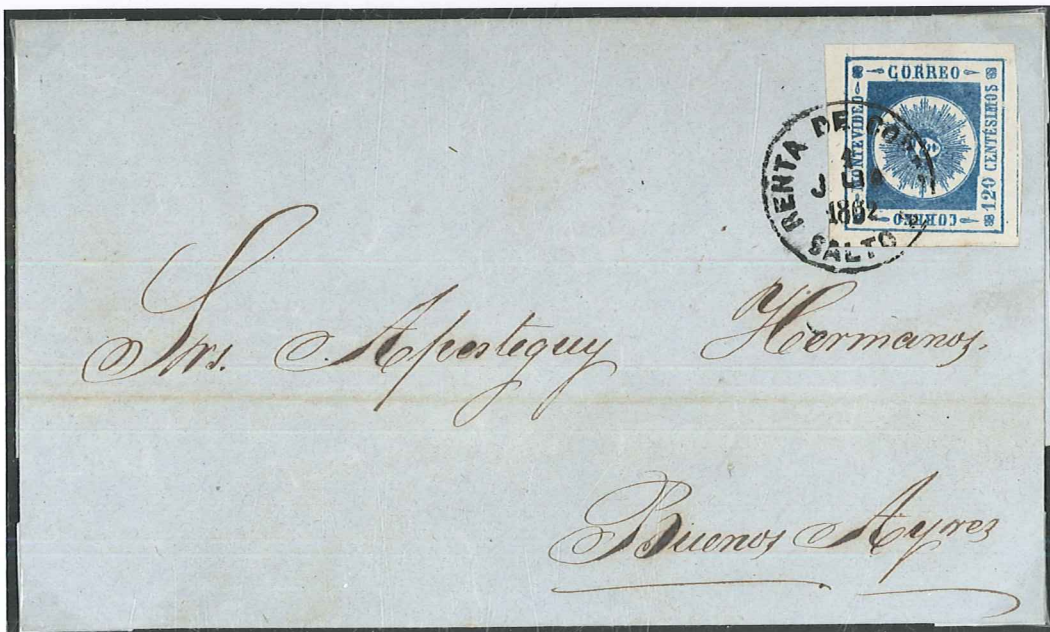 CORREO
MONTEVIDEO
120 CENTÉSIMOS
CORREO
RENTA DE
4
1862
SALTO
Srs. Apesteguy Hermanos.
Buenos Ayres